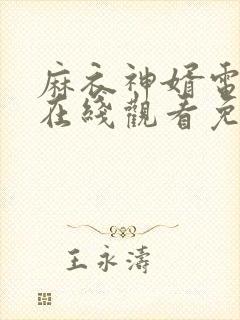 麻衣神婿電
在綫觀看免
王永濤